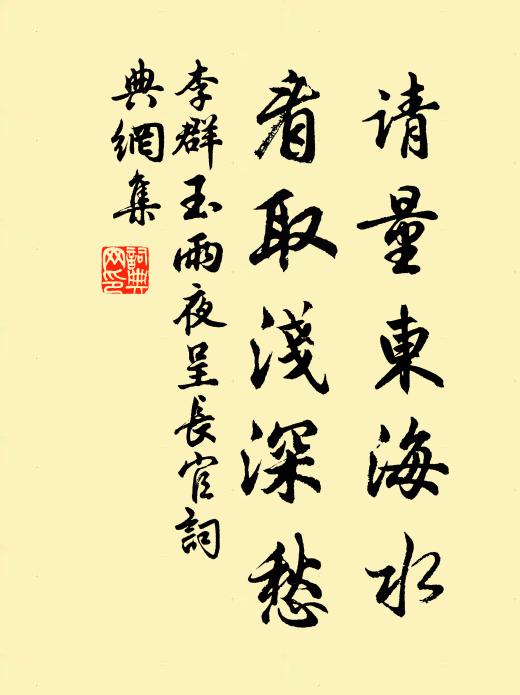 请量東海水
看取淺深愁
李群玉雨夜呈長官詞
典網集
詞典
网印